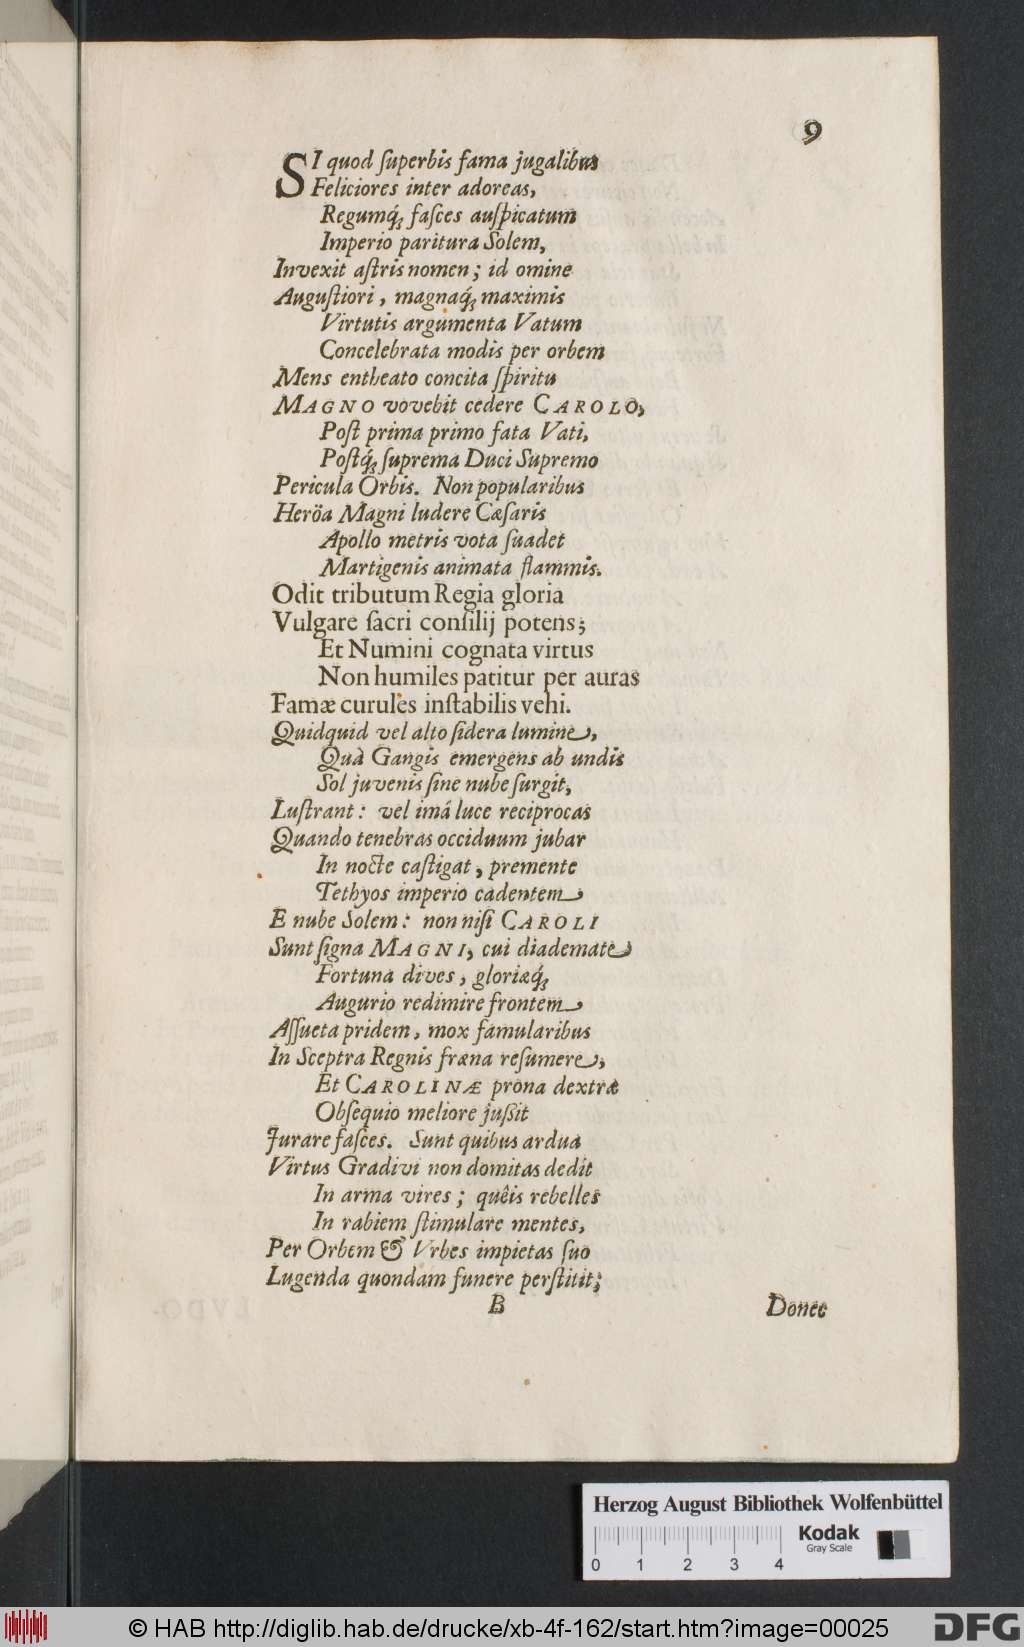 9
SI quod ſuperbis fama jugalibus
Feliciores inter adoreas,
Regumq́; faſces auſpicatum
Imperio paritura Solem,
Invexit aſtris nomen; id omine
Auguſtiori, magnaq́; maximis
Virtutis argumenta Vatum
Concelebrata modis per orbem
Mens entheato concita ſpiritu
MAGNO vovebit cedere CAROLO,
Poſt prima primo fata Vati,
Poſtq́; ſuprema Duci Supremo
Pericula Orbis. Non popularibus
Heröa Magni ludere Cæſaris
Apollo metris vota ſuadet
Martigenis animata flammis.
Odit tributum Regia gloria
Vulgare ſacri conſilij potens;
Et Numini cognata virtus
Non humiles patitur per auras
Famæ curules inſtabilis vehi.
Quidquid vel alto ſidera lumine,
Quà Gangis emergens ab undis
Sol juvenis ſine nube ſurgit,
Luſtrant: vel imá luce reciprocas
Quando tenebras occiduum jubar
In nocte caſtigat, premente
Tethyos imperio cadentem
E nube Solem: non niſi CAROLI
Sunt ſigna MAGNI, cui diademate
Fortuna dives, gloriæq́;
Augurio redimire frontem
Aſſueta pridem, mox famularibus
In Sceptra Regnis fræna reſumere,
Et CAROLINÆ prona dextræ
Obſequio meliore juſsit
Jurare faſces. Sunt quibus ardua
Virtus Gradivi non domitas dedit
In arma vires; quêis rebelles
In rabiem ſtimulare mentes,
Per Orbem & Vrbes impietas ſuo
Lugenda quondam funere perſtitit;
B Donec
Herzog August Bibliothek Wolfenbüttel
Kodak
Gray Scale
0 1 2 3 4
© HAB http://diglib.hab.de/drucke/xb-4f-162/start.htm?image=00025
DFG